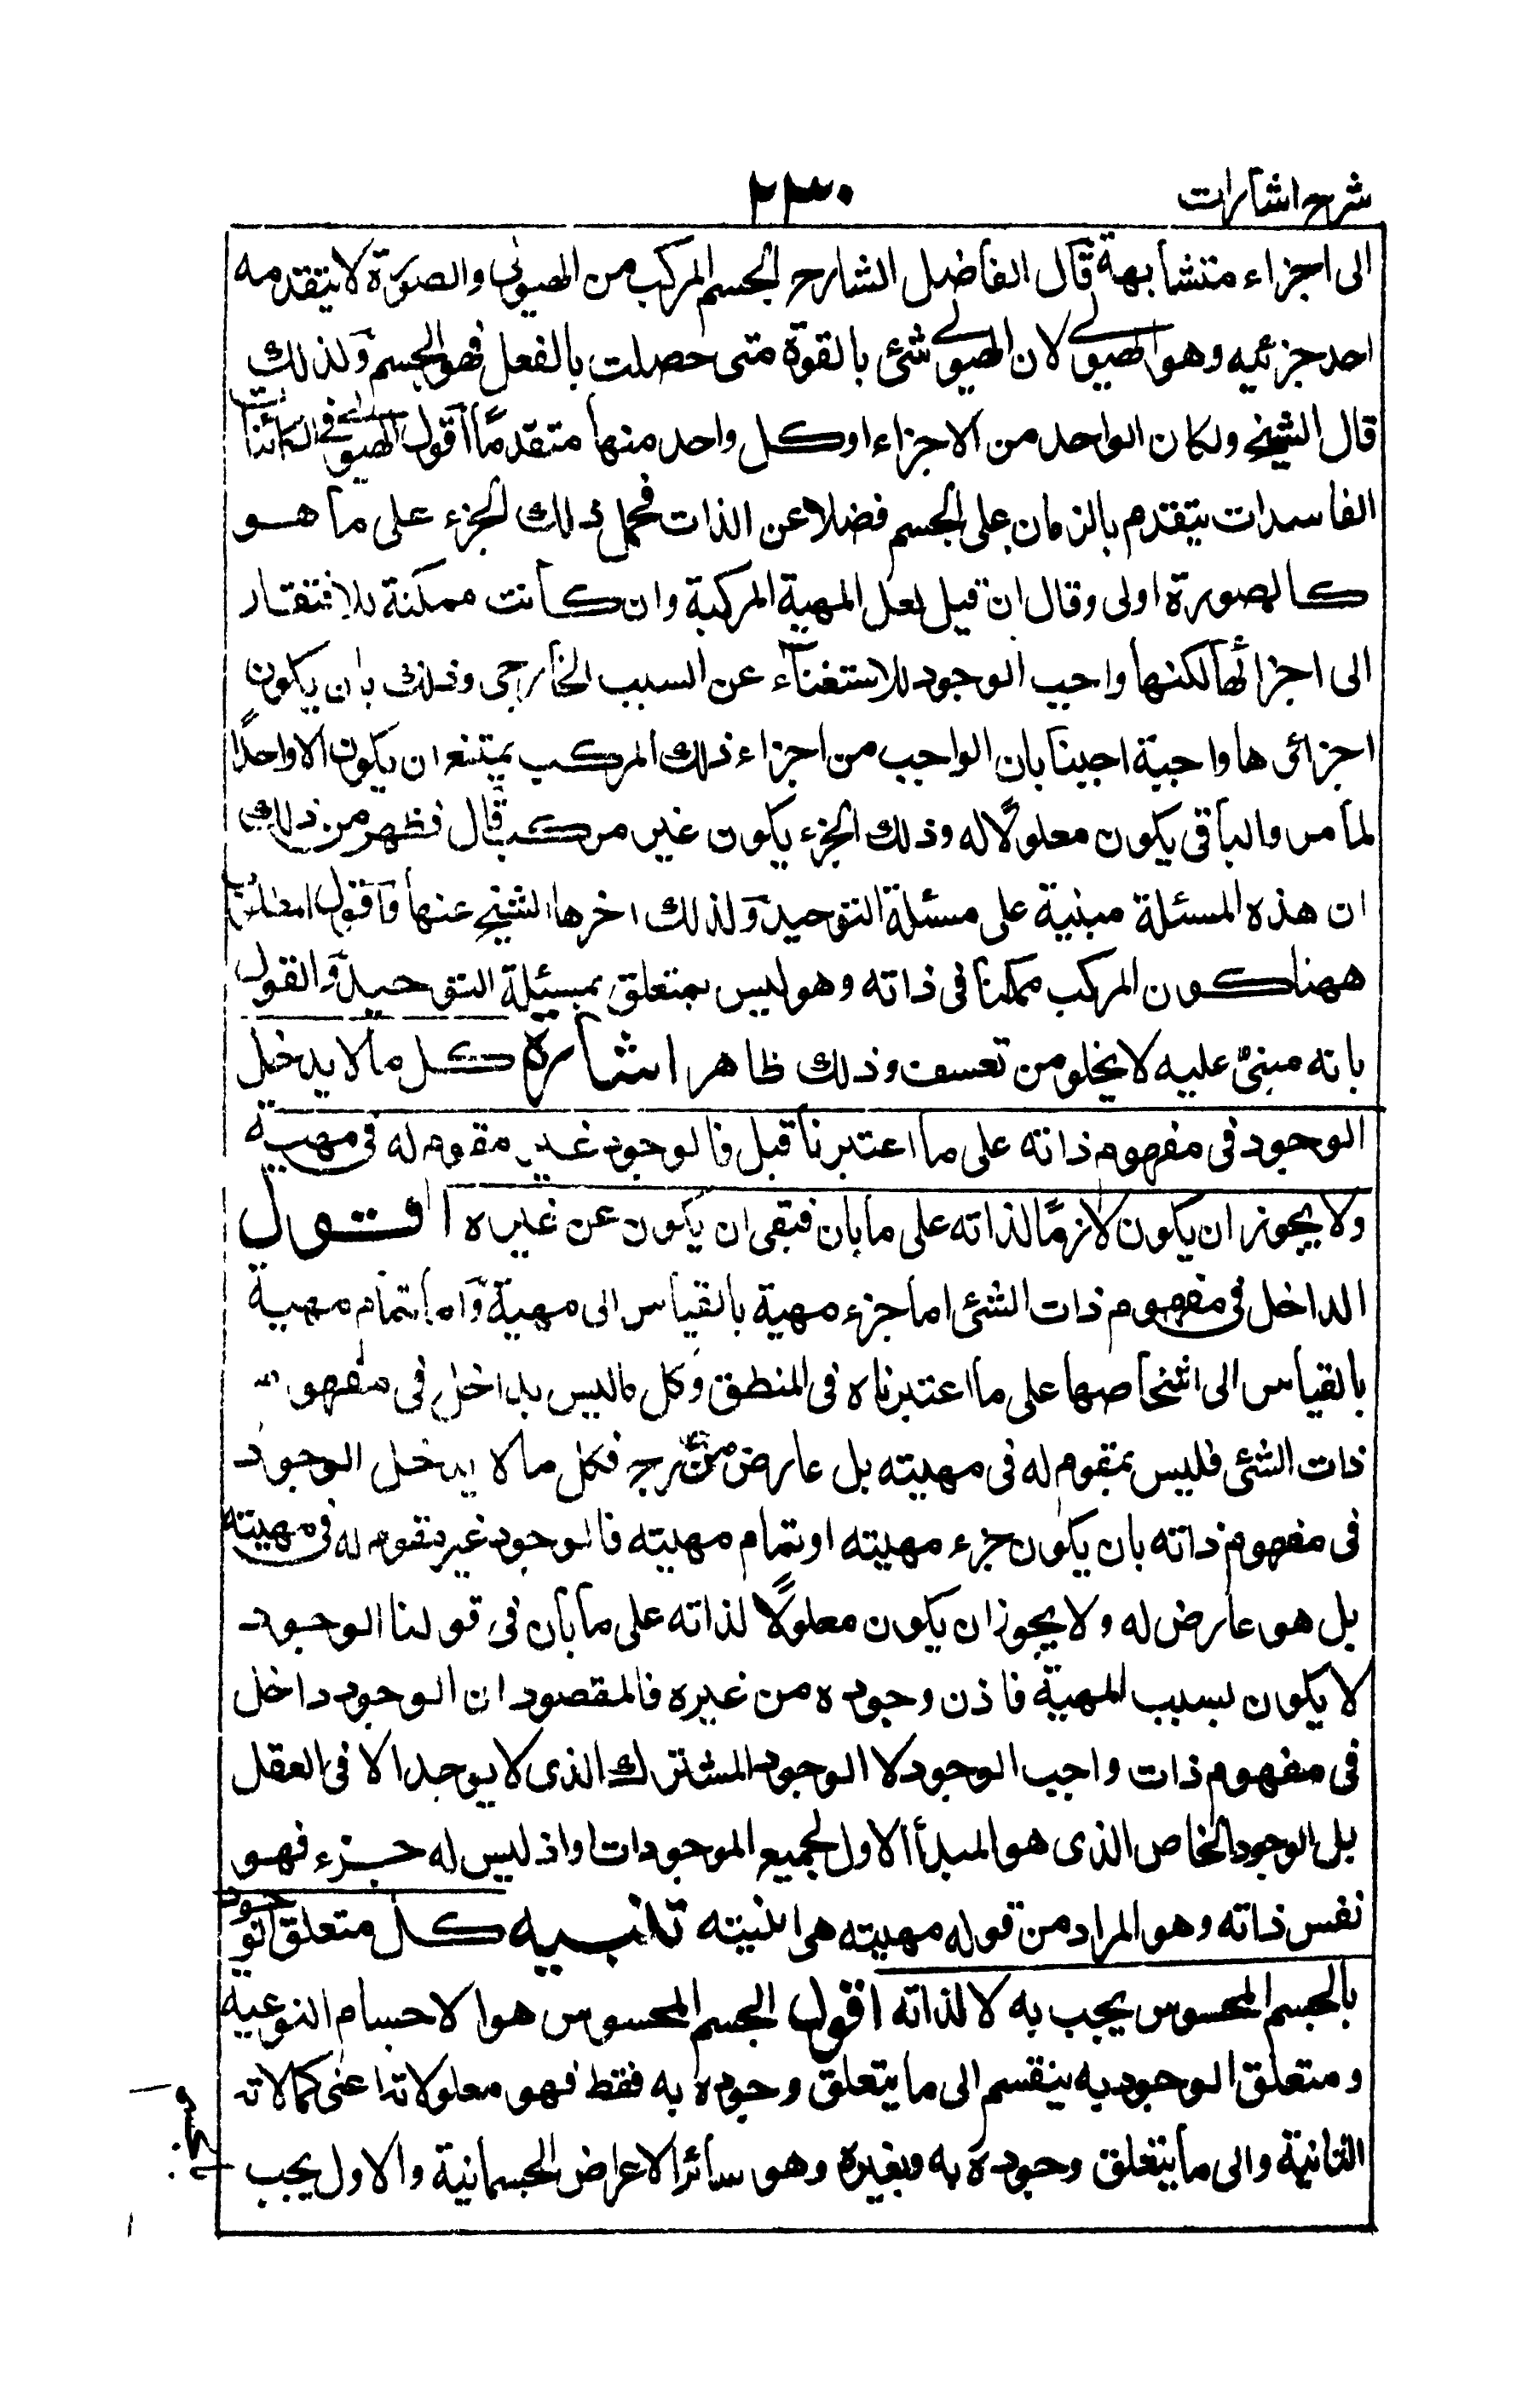 شرح اشارات
٢٣٠
الى اجزاء متشابهة قال الفاضل الشارح الجسم المركب من الهيولى والصورة لا يتقدمه
احد جزئيه وهو الهيولى لان الهيولى شئ بالقوة متى حصلت بالفعل فهو الجسم ولذلك
قال الشيخ ولكان الواحد من الاجزاء او كل واحد منها متقدمًا اقول الهيولى فى الكائنات
الفاسدات يتقدم بالزمان على الجسم فضلا عن الذات فحمل ذلك الجزء على ما هو
كالصورة اولى وقال ان قيل لعل المهية المركبة وان كانت ممكنة للافتقار
الى اجزائها لكنها واجب الوجود للاستغناء عن السبب الخارجى وذلك بان يكون
اجزائى ها واجبة اجينا بان الواجب من اجزاء ذلك المركب يمتنع ان يكون الا واحدًا
لما مر والباقى يكون معلولًا له وذلك الجزء يكون غير مركب قال فظهر من ذلك
ان هذه المسئلة مبنية على مسئلة التوحيد ولذلك اخرها الشيخ عنها وآقول المطلوب
ههنا كون المركب ممكنا فى ذاته وهو ليس بمتعلق بمسئلة التوحيد والقول
بانه مبنىٌ عليه لا يخلو من تعسف وذلك ظاهر اشارة كل ما لا يدخل
الوجود فى مفهوم ذاته على ما اعتبرنا قبل فالوجود غير مقوم له فى مهية
ولا يجوز ان يكون لازمًا لذاته على ما بان فبقى ان يكون عن غيره اقول
الداخل فى مفهوم ذات الشئ اما جزء مهية بالقياس الى مهية واما تمام مهية
بالقياس الى اشخاصها على ما اعتبرناه فى المنطق وكل ماليس بداخل فى مفهوم
ذات الشئ فليس بمقوم له فى مهيته بل عارض من خارج فكل ما لا يدخل الوجود
فى مفهوم ذاته بان يكون جزء مهيته او تمام مهيته فالوجود غير مقوم له فى مهيته
بل هو عارض له ولا يجوز ان يكون معلولًا لذاته على ما بان فى قولنا الوجود
لا يكون بسبب المهية فاذن وجوده من غيره فالمقصود ان الوجود داخل
فى مفهوم ذات واجب الوجود لا الوجود المشترك الذى لا يوجد الا فى العقل
بل الوجود الخاص الذى هو المبدأ الاول لجميع الموجودات واذ ليس له جزء فهو
نفس ذاته وهو المراد من قوله مهيته هى انيته تنبيه كل متعلق الوجود
بالجسم المحسوس يجب به لا لذاته اقول الجسم المحسوس هو الاجسام النوعية
ومتعلق الوجود به ينقسم الى ما يتعلق وجوده به فقط فهو معلولاته اعنى كمالاته
الثانية والى ما يتعلق وجوده به وبغيره وهو سائر الاعراض الجسمانية والاول يجب